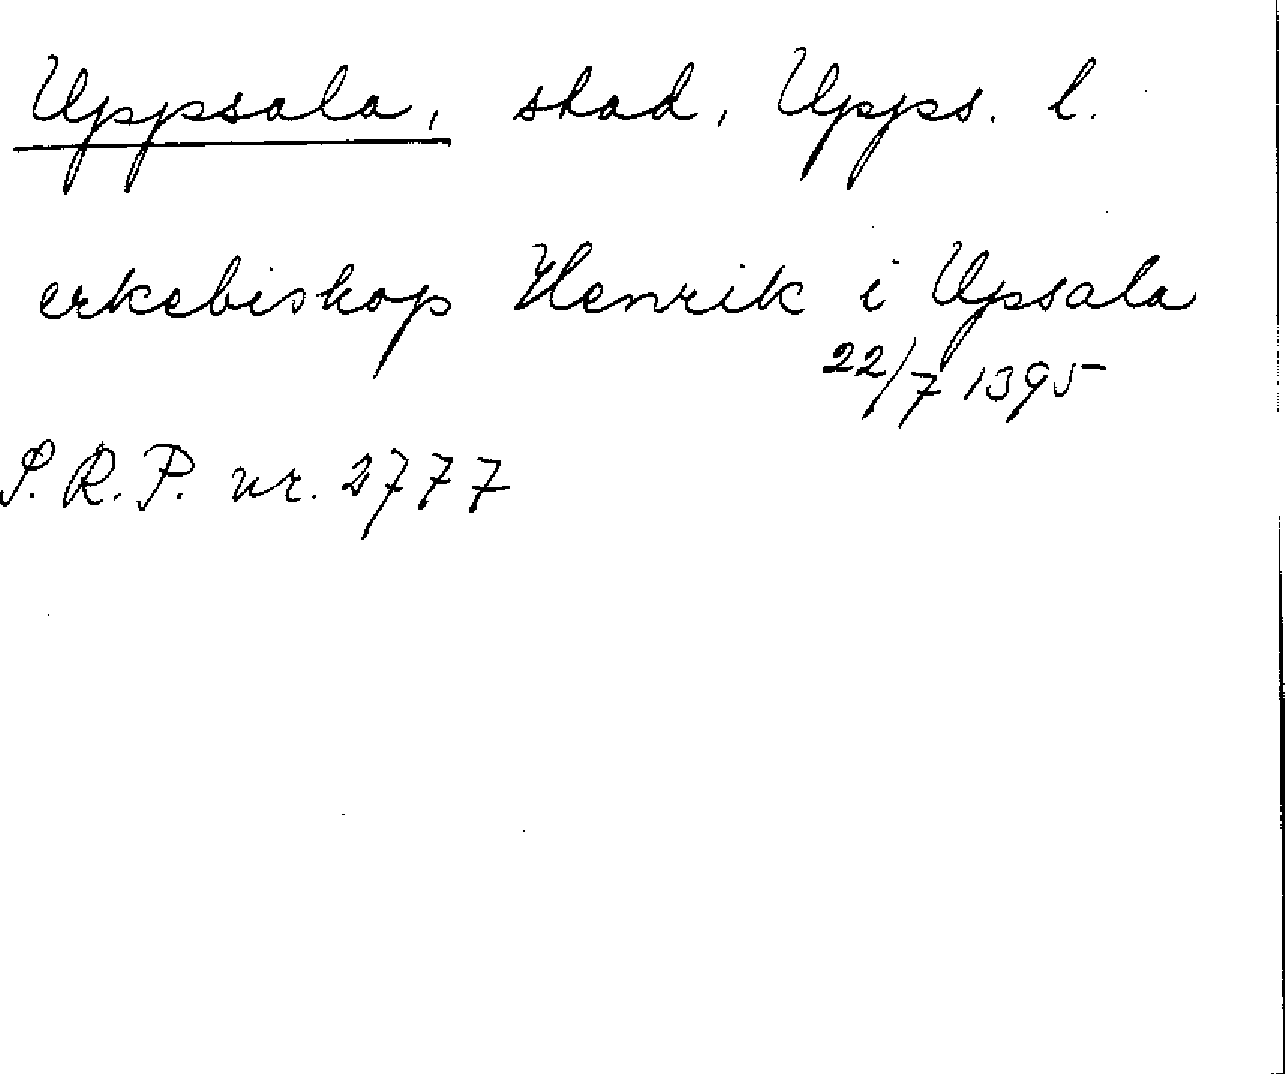 Uppsala, stad, Upps. l.
erkebiskop Henrik i Upsala
22/7 1395
S.R.P. nr. 2777